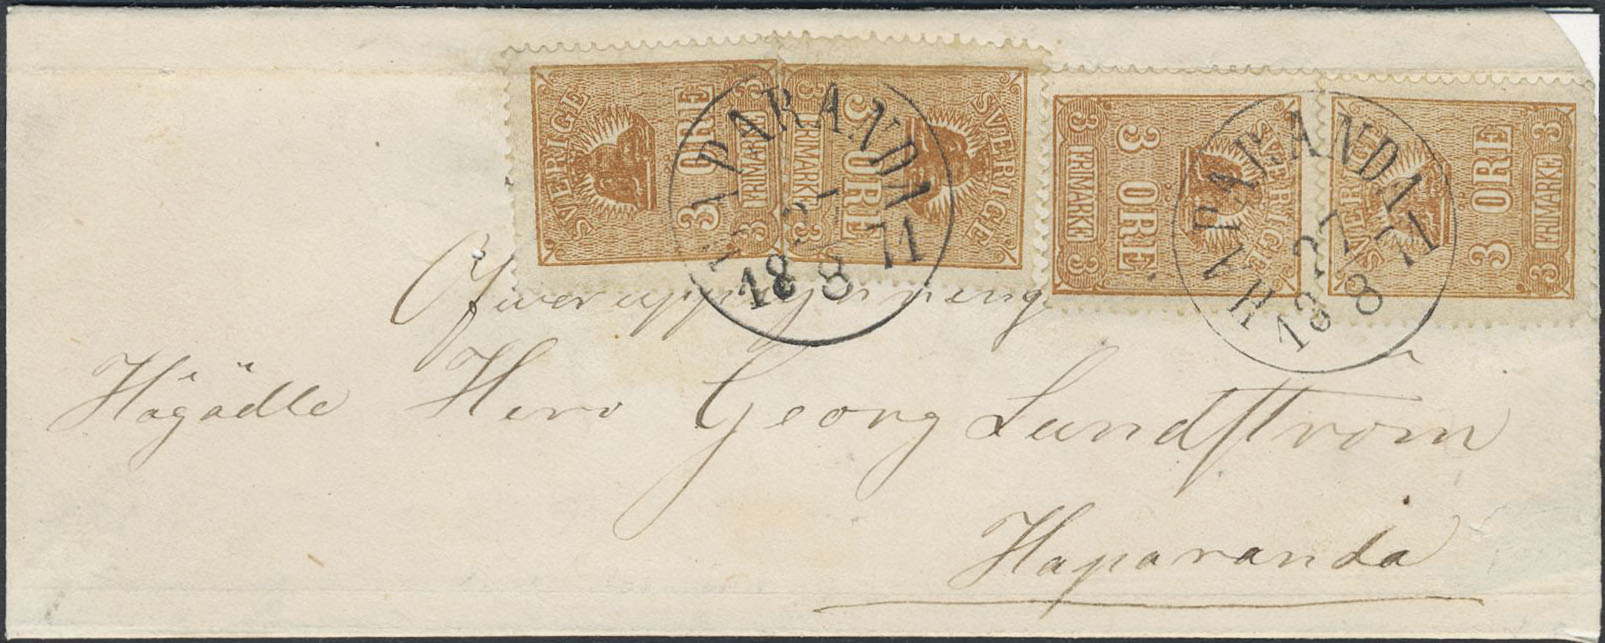 SVERIGE 3 ÖRE FRIMÄRKE 3 3
SVERIGE 3 ÖRE FRIMÄRKE 3 3
SVERIGE 3 ÖRE FRIMÄRKE 3 3
SVERIGE 3 ÖRE FRIMÄRKE 3 3
HAPARANDA
27
18 8 71
HAPARANDA
27
18 8 71
Högädle Herr Georg Lundström
Haparanda